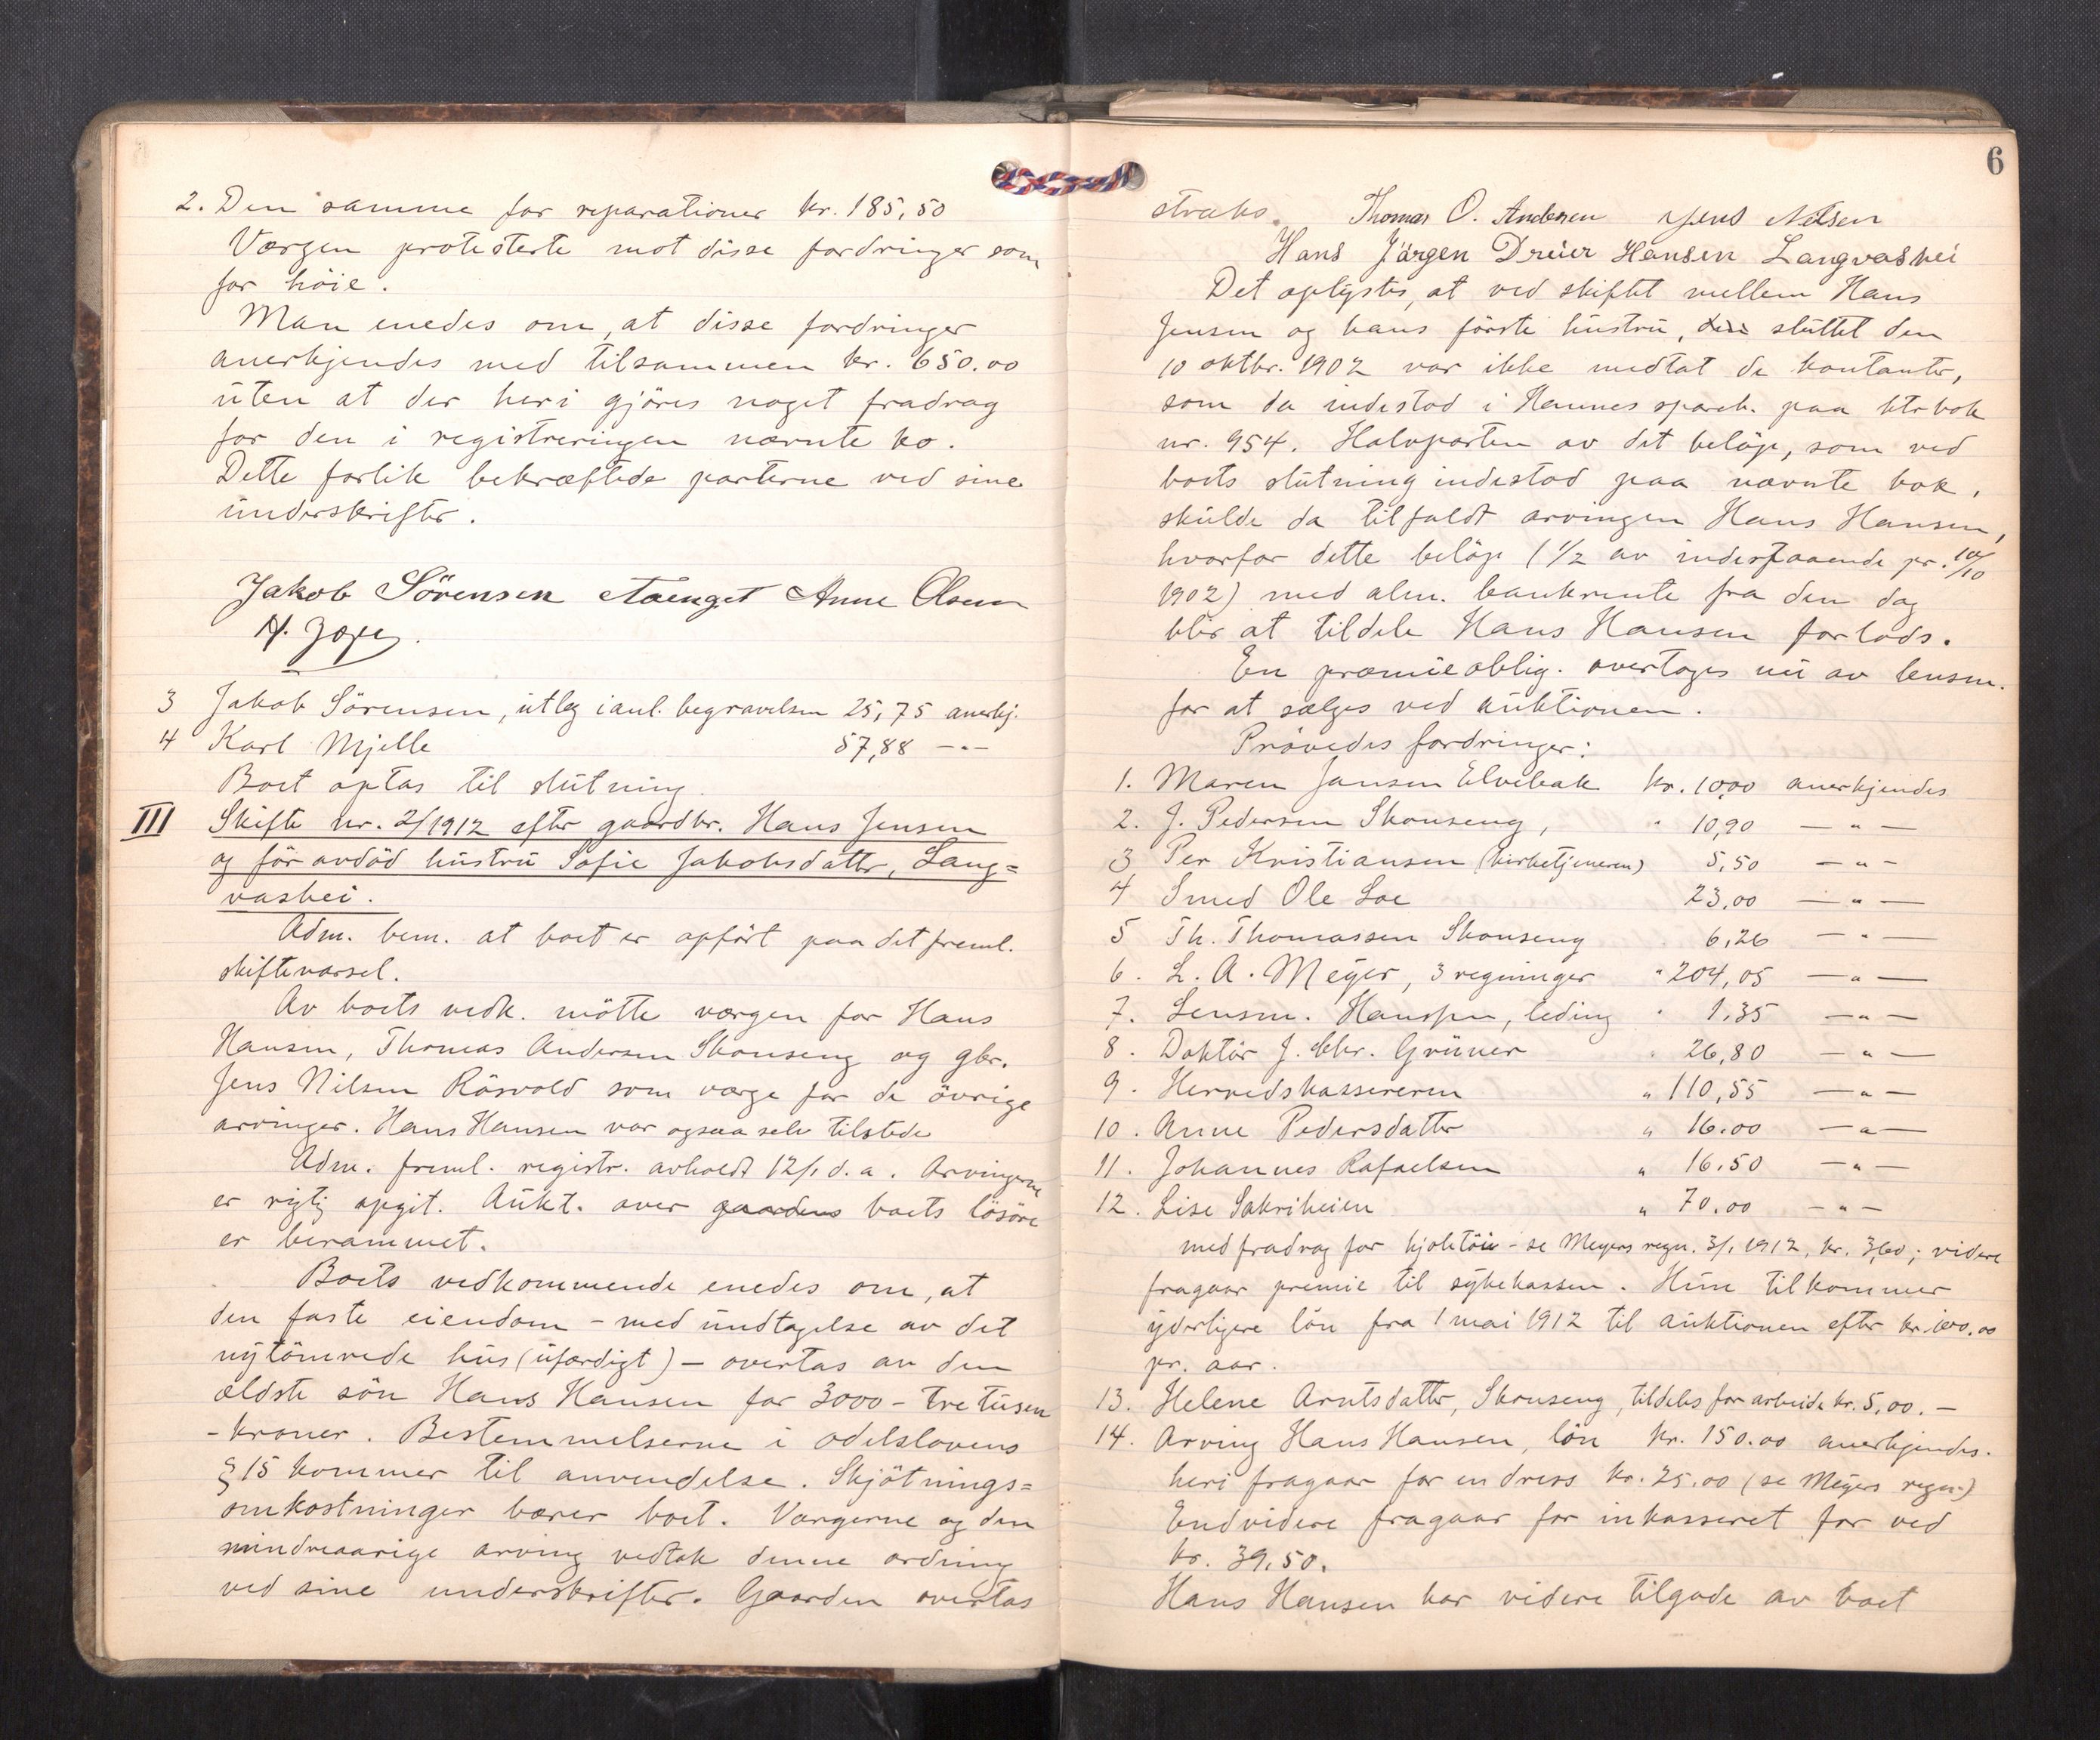 2. Den samme for reparationer kr. 185,50
Værgen protesterte mot disse fordringer som
for höie.
Man enedes om, at disse fordringer
anerkjendes med tilsammen kr. 650.00
uten at der heri gjöres noget fradrag
for den i registreringen nævnte ko.
Dette forlik bekræftede parterne ved sine
underskrifter.
Jakob Sörensen Anne Olsen
3 Jakob Sörensen, utlæg i anl. begravelsen 25,75 anerkj.
4 Karl Mjelle 57,88 -"-
Boet optas til slutning.
III Skifte nr. 2/1912 efter gaardbr. Hans Jensen
og för avdöd hustru Sofie Jakobsdatter, Lang=
vashei.
Adm. bem. at boet er opfört paa det freml.
skiftevarsel.
Av boets vedk. mötte værgen for Hans
Hansen, Thomas Andersen Skonseng og gbr.
Jens Nilsen Rösvold som værge for de övrige
arvinger. Hans Hansen var ogsaa selv tilstede
Adm. freml. registr. avholdt 12/1 d. a. Arvingerne
er rigtig opgit. Aukt. over gaardens boets lösöre
er berammet.
Boets vedkommende enedes om, at
den faste eiendom - med undtagelse av det
nytömrede hus (ufærdigt) - overtas av den
ældste sön Hans Hansen for 3000 - tre tusen
- kroner. Bestemmelserne i odelslovens
§ 15 kommer til anvendelse. Skjötnings=
omkostninger bærer boet. Værgerne og den
mindreaarige arving vedtok denne ordning
ved sine underskrifter. Gaarden overtas
6
straks. Thomas O. Andersen Jens Nilsen
Hans Jörgen Dreier Hansen Langvashei
Det oplystes, at ved skiftet mellem Hans
Jensen og hans förste hustru, den sluttet den
10 oktbr. 1902 var ikke medtat de kontanter,
som da indestod i Hemnes spareb. paa ktrbok
nr. 954. Halvparten av det belöp, som ved
boets slutning indestod paa nævnte bok,
skulde da tilfaldt arvingen Hans Hansen,
hvorfor dette belöp (1/2 av indestaaende pr. 10/10
1902) med alm. bankrente fra den dag
blir at tildele Hans Hansen forlods.
En præmieoblig. overtages nu av lensm.
for at sælges ved auktionen.
Prövedes fordringer:
1. Maren Jansen Elvebak kr. 10,00 anerkjendes
2. J. Pedersen Skonseng, " 10,90 -"-
3 Per Kristiansen (kirketjeneren) 5,50 -"-
4 Smed Ole Loe 23,00 -"-
5 Th. Thomassen Skonseng 6,26 -"-
6. L. A. Meyer, 3 regninger " 204,05 -"-
7. Lensm. Hanssen, leding " 1,35 -"-
8. Doktor J. Chr. Grüner " 26,80 -"-
9. Herredskassereren " 110,55 -"-
10. Anne Pedersdatter " 16.00 -"-
11. Johannes Rafaelsen " 16.50 -"-
12. Lise Sakriheien " 70.00 -"-
med fradrag for kjoletöie - se Meyers regn. 3/1 1912, kr. 3,60; videre
fragaar premie til sykekassen. Hun tilkommer
yderligere lön fra 1 mai 1912 til auktionen efter kr. 100.00
pr. aar.
13. Helene Arntsdatter, Skonseng, tildeles for arbeide kr. 5,00. -
14. Arving Hans Hansen, lön kr. 150.00 anerkjendes.
heri fragaar for en dress kr. 25.00 (se Meyers regn.)
Endvidere fragaar for inkasseret for ved
kr. 39.50.
Hans Hansen har videre tilgode av boet